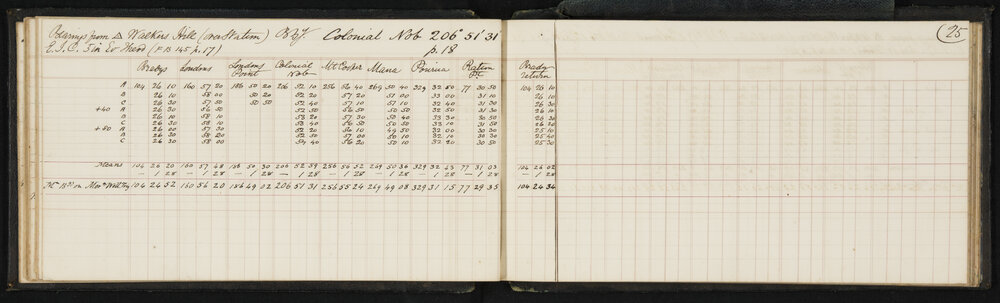 Bearings from △ Walkers Hill (over Station) Colonial Nob 206° 51' 31
E.I.C. 5 in Ev Theod (F.B 145 p.17) p.18
25
Bradys Londons Londons Point Colonial Nob Mt Cooper Mana Porirua Ration Pt. Bradys return
A 104 26 10 160 57 20 186 50 20 206 52 10 256 56 40 269 50 40 329 32 50 77 30 50 104 26 10
B 26 10 58 00 50 20 52 20 57 20 51 00 33 00 31 10 26 10
C 26 30 57 50 50 50 52 40 57 10 51 10 32 40 31 30 26 30
+40 A 26 30 56 50 52 50 56 50 50 50 32 50 31 30 26 20
B 26 10 58 10 53 20 57 30 50 40 33 30 30 50 26 10
C 26 30 58 10 53 40 56 50 50 50 33 10 31 50 26 30
+80 A 26 00 57 30 52 20 56 10 49 50 32 10 30 30 25 40
B 26 30 58 20 52 50 57 00 50 10 32 10 30 30 25 40
C 26 30 58 00 54 40 56 20 50 10 32 20 30 50 25 30
Means 104 26 20 160 57 48 186 50 30 206 52 59 256 56 52 269 50 36 329 32 43 77 31 03 104 26 02
— 1 28 — 1 28 — 1 28 — 1 28 — 1 28 — 1 28 — 1 28 — 1 28 — 1 28
104 24 52 160 56 20 186 49 02 206 51 31 256 55 24 269 49 08 329 31 15 77 29 35 104 24 34